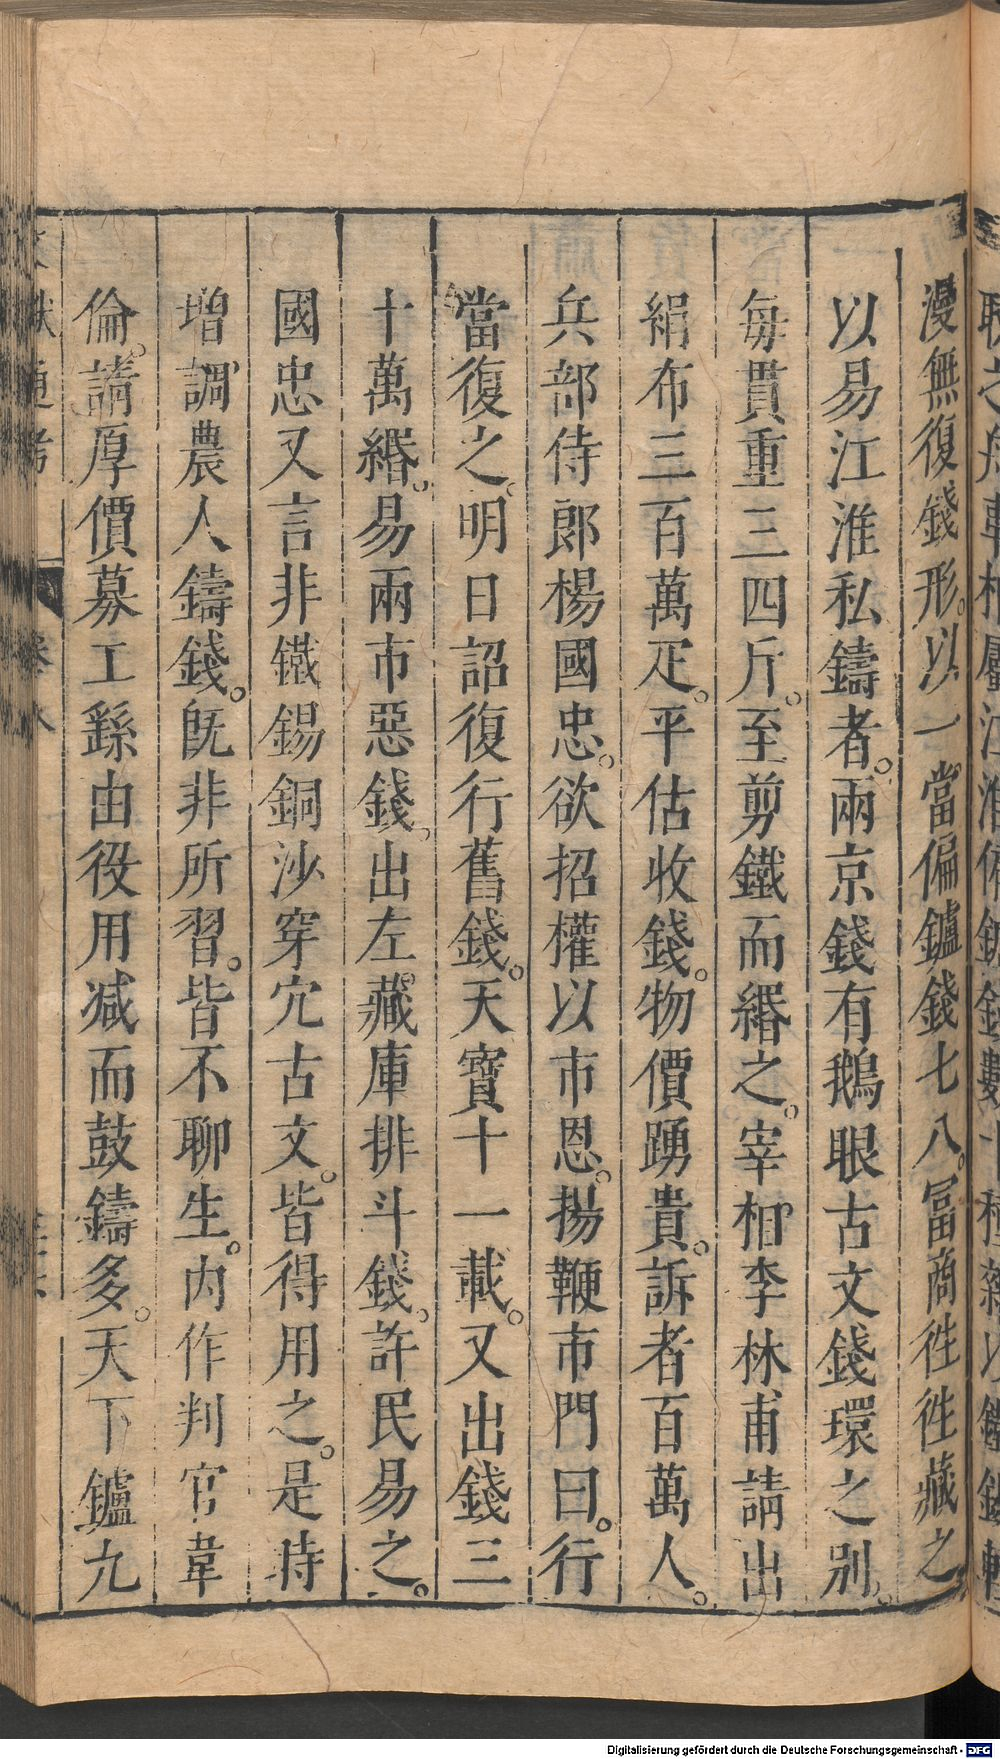 漫無復錢形。以一當偏鑪錢七八。冨商徃徃藏之
以易江淮私鑄者。兩京錢有鵝眼古文錢環之别。
毎貫重三四斤。至剪鐵而緡之。宰相李林甫請出
絹布三百萬疋。平估收錢。物價踴貴。訴者百萬人。
兵部侍郎楊國忠。欲招權以市恩。揚鞭市門曰。行
當復之。明日詔復行舊錢。天寳十一載。又出錢三
十萬緡。易兩市惡錢。出左藏庫排斗錢。許民易之。
國忠又言非鐵錫銅沙穿穴古文。皆得用之。是時
増調農人鑄錢。旣非所習。皆不聊生。内作判官韋
倫。請厚價募工繇由役用减而鼓鑄多。天下鑪九
Digitalisierung gefördert durch die Deutsche Forschungsgemeinschaft - DFG